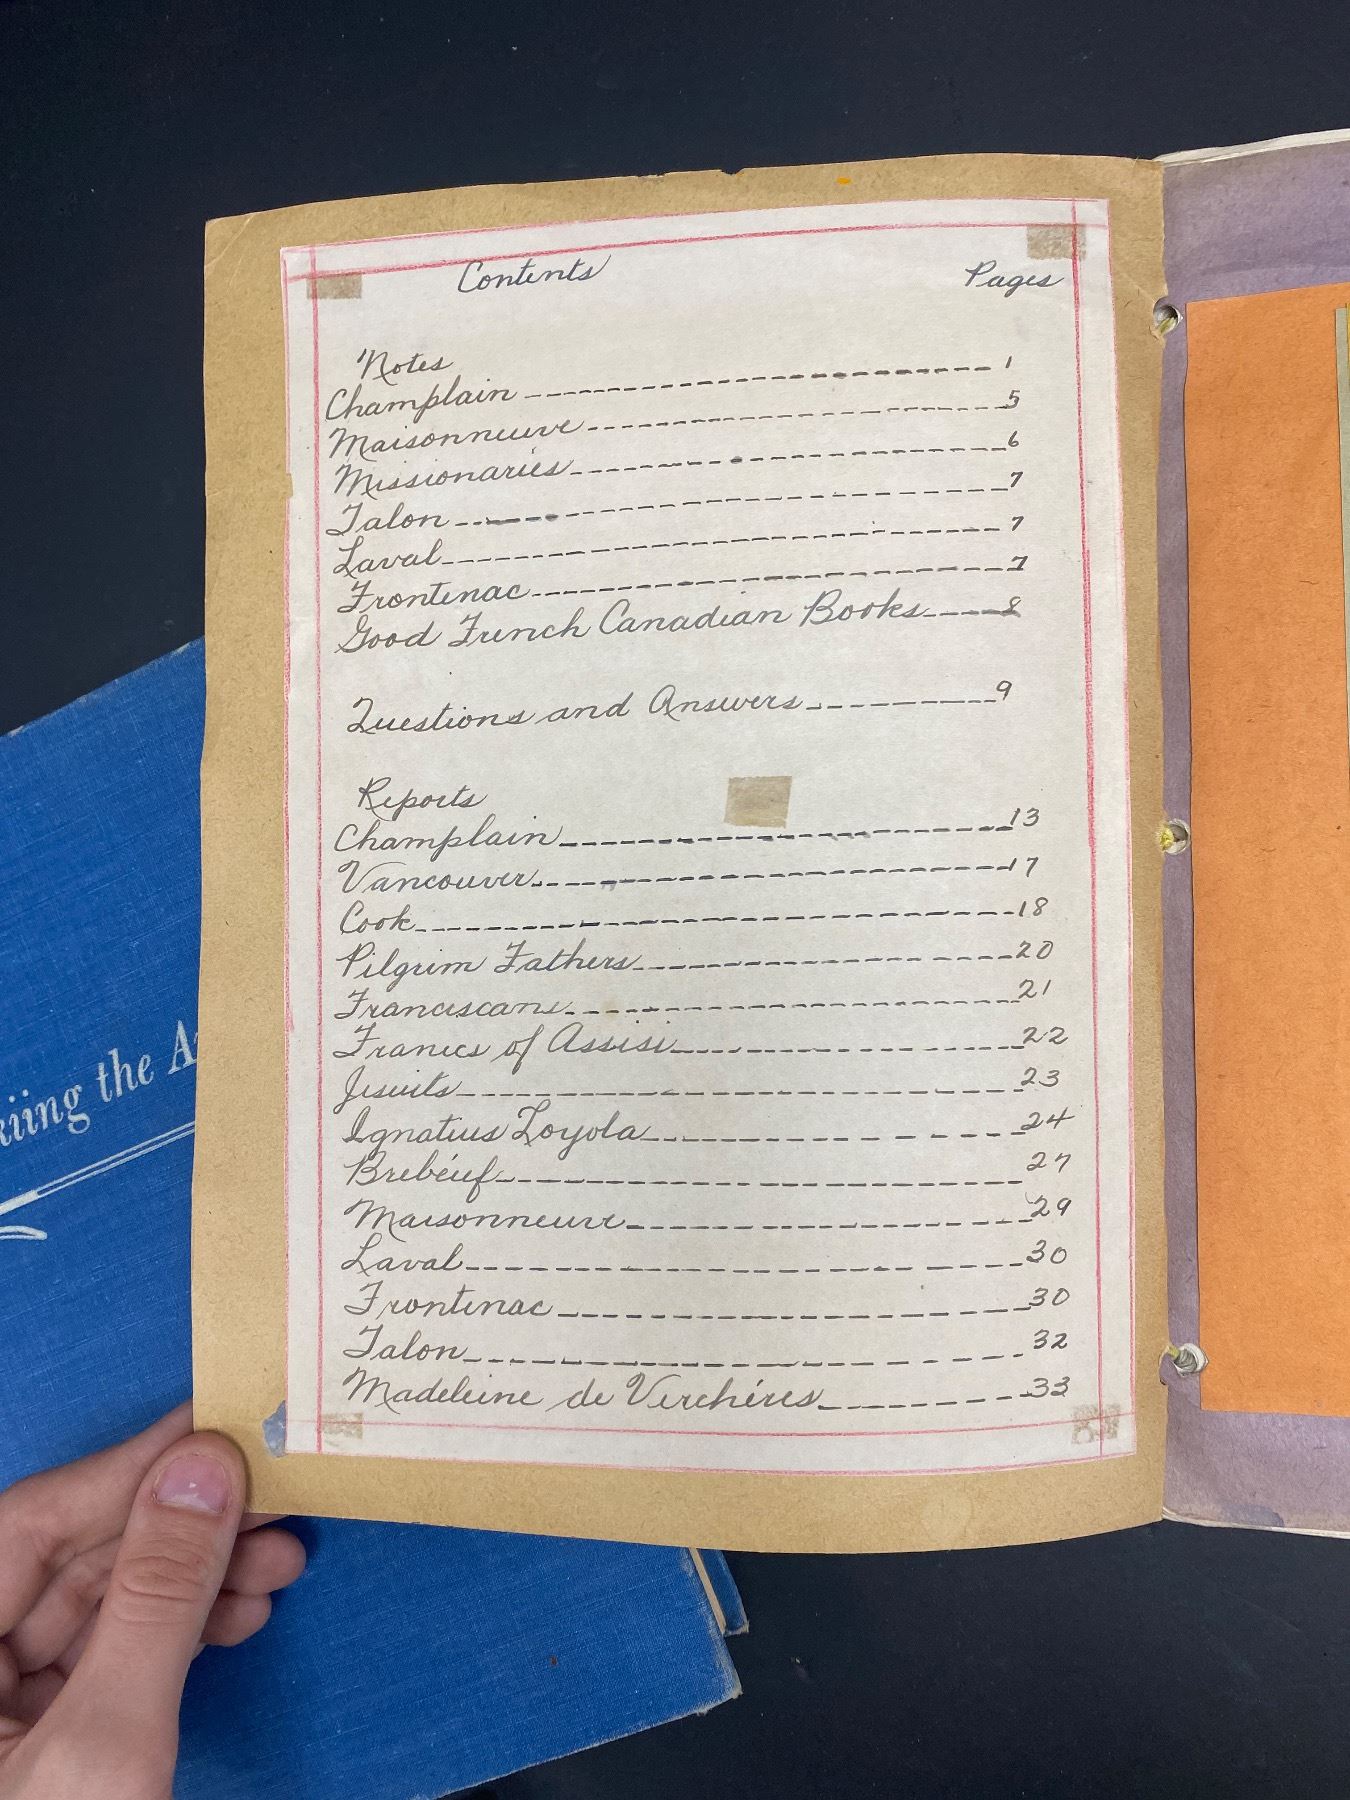 Contents Pages
Notes
Champlain 1
Maisonneuve 5
Missionaries 6
Talon 7
Laval 7
Frontenac 7
Good French Canadian Books 8
Questions and Answers 9
Reports
Champlain 13
Vancouver 17
Cook 18
Pilgrim Fathers 20
Franciscans 21
Francis of Assisi 22
Jesuits 23
Ignatius Loyola 24
Brebéuf 27
Maisonneuve 29
Laval 30
Frontenac 30
Talon 32
Madeleine de Verchéres 33
kiing the A